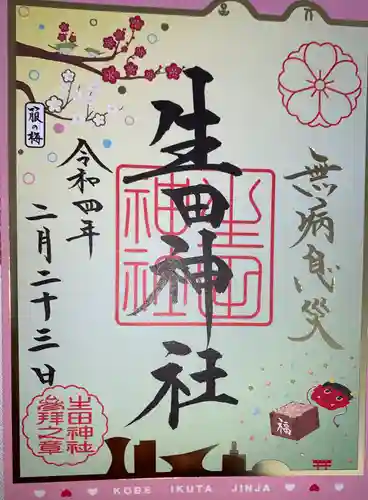 無病息災
生田神社
生田神社
箙の梅
令和四年
二月二十三日
生田神社
参拝之章
福
KOBE IKUTA JINJA